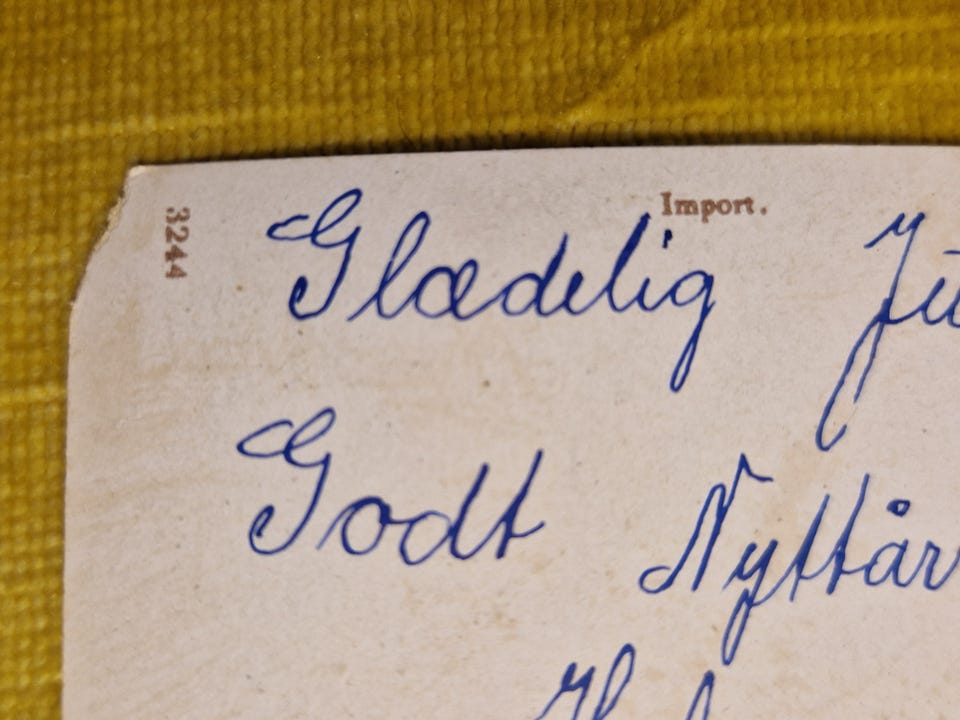 3244
Import.
Glædelig Ju
Godt Nyttår